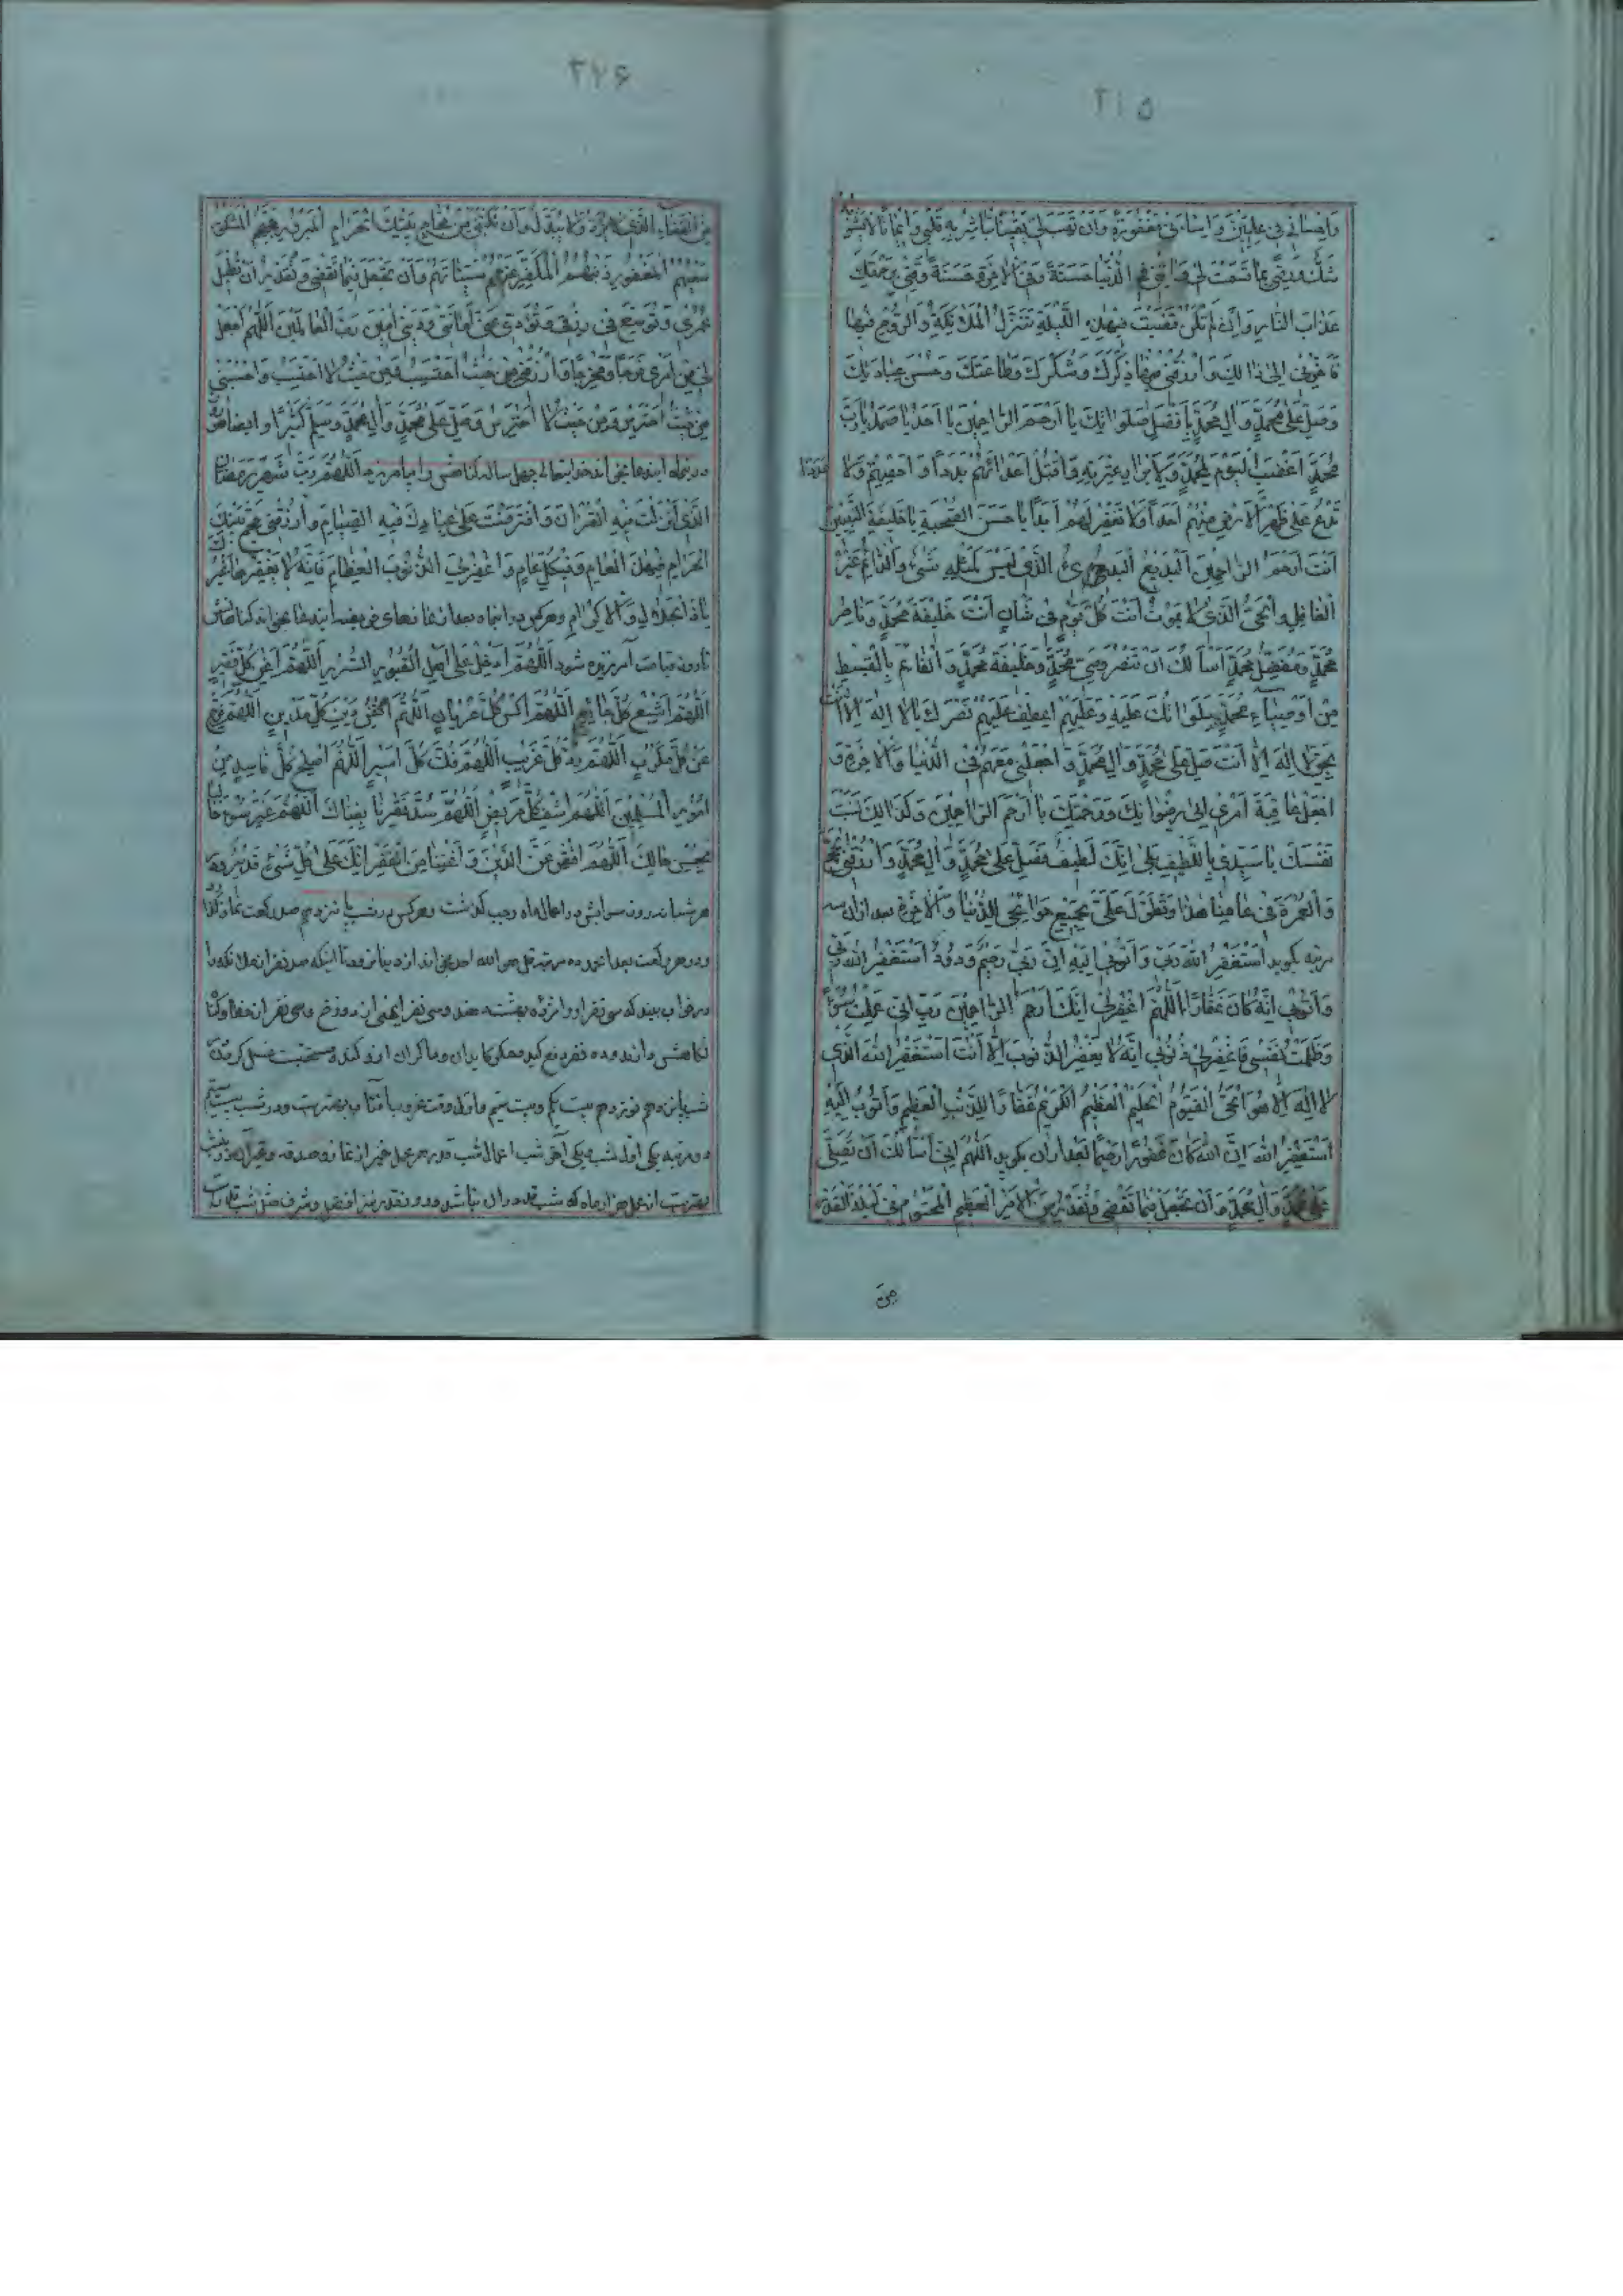 ۲۱۵
وَاِحْسَانِي فِي عِلِّيِّينَ وَاِسَاءَتِي مَغْفُورَةً وَاَنْ تَهَبَ لِي يَقِينًا تُبَاشِرُ بِهِ قَلْبِي وَاِيمَانًا لَا يَشُوبُهُ
شَكٌّ وَرِضًى بِمَا قَسَمْتَ لِي وَآتِنِي فِي الدُّنْيَا حَسَنَةً وَفِي الْاٰخِرَةِ حَسَنَةً وَقِنِي بِرَحْمَتِكَ
عَذَابَ النَّارِ وَاِنْ لَمْ تَكُنْ قَضَيْتَ فِي هٰذِهِ اللَّيْلَةِ تَنَزُّلَ الْمَلَائِكَةِ وَالرُّوحِ فِيهَا
فَاَخِّرْنِي اِلَى ذَالِكَ وَارْزُقْنِي فِيهَا ذِكْرَكَ وَشُكْرَكَ وَطَاعَتَكَ وَحُسْنَ عِبَادَتِكَ
وَصَلِّ عَلَى مُحَمَّدٍ وَآلِ مُحَمَّدٍ بِاَفْضَلِ صَلَوَاتِكَ يَا اَرْحَمَ الرَّاحِمِينَ يَا اَحَدُ يَا صَمَدُ يَا رَبَّ
مُحَمَّدٍ اغْضَبِ الْيَوْمَ لِمُحَمَّدٍ وَلِاَبْرَارِ عِتْرَتِهِ وَاقْتُلْ اَعْدَائَهُمْ بَدَدًا وَاَحْصِهِمْ عَدَدًا وَلَا
تَدَعْ عَلَى ظَهْرِ الْاَرْضِ مِنْهُمْ اَحَدًا وَلَا تَغْفِرْ لَهُمْ اَبَدًا يَا حَسَنَ الصُّحْبَةِ يَا خَلِيفَةَ النَّبِيِّينَ
اَنْتَ اَرْحَمُ الرَّاحِمِينَ الْبَدِيعُ الْبَدِيءُ الَّذِي لَيْسَ كَمِثْلِهِ شَيْءٌ وَالدَّائِمُ غَيْرُ
الْغَافِلِ وَالْحَيُّ الَّذِي لَا يَمُوتُ اَنْتَ كُلَّ يَوْمٍ فِي شَانٍ اَنْتَ خَلِيفَةُ مُحَمَّدٍ وَنَاصِرُ
مُحَمَّدٍ وَمُفَضِّلُ مُحَمَّدٍ اَسْأَلُكَ اَنْ تَنْصُرَ وَصِيَّ مُحَمَّدٍ وَخَلِيفَةَ مُحَمَّدٍ وَالْقَائِمَ بِالْقِسْطِ
مِنْ اَوْصِيَاءِ مُحَمَّدٍ صَلَوَاتُكَ عَلَيْهِ وَعَلَيْهِمْ اعْطِفْ عَلَيْهِمْ نَصْرَكَ يَا لَا اِلٰهَ اِلَّا اَنْتَ
بِحَقِّ لَا اِلٰهَ اِلَّا اَنْتَ صَلِّ عَلَى مُحَمَّدٍ وَآلِ مُحَمَّدٍ وَاجْعَلْنِي مَعَهُمْ فِي الدُّنْيَا وَالْاٰخِرَةِ وَ
اجْعَلْ عَاقِبَةَ اَمْرِي اِلَى رِضْوَانِكَ وَرَحْمَتِكَ يَا اَرْحَمَ الرَّاحِمِينَ وَكَذَالِكَ نَسَبْتَ
نَفْسَكَ يَا سَيِّدِي بِاللَّطِيفِ بَلَى اِنَّكَ لَطِيفٌ فَصَلِّ عَلَى مُحَمَّدٍ وَآلِ مُحَمَّدٍ وَارْزُقْنِي الْحَجَّ
وَالْعُمْرَةَ فِي عَامِنَا هٰذَا وَتَطَوَّلْ عَلَيَّ بِجَمِيعِ حَوَائِجِي لِلدُّنْيَا وَالْاٰخِرَةِ بعد ازان سه
مرتبه بگوید اَسْتَغْفِرُ اللهَ رَبِّي وَاَتُوبُ اِلَيْهِ اِنَّ رَبِّي رَحِيمٌ وَدُودٌ اَسْتَغْفِرُ اللهَ رَبِّي
وَاَتُوبُ اِنَّهُ كَانَ غَفَّارًا اَللّٰهُمَّ اغْفِرْ لِي اِنَّكَ اَرْحَمُ الرَّاحِمِينَ رَبِّ اِنِّي عَمِلْتُ سُوءًا
وَظَلَمْتُ نَفْسِي فَاغْفِرْ لِي ذُنُوبِي اِنَّهُ لَا يَغْفِرُ الذُّنُوبَ اِلَّا اَنْتَ اَسْتَغْفِرُ اللهَ الَّذِي
لَا اِلٰهَ اِلَّا هُوَ الْحَيُّ الْقَيُّومُ الْحَلِيمُ الْعَظِيمُ الْكَرِيمُ غَفَّارًا لِلذَّنْبِ الْعَظِيمِ وَاَتُوبُ اِلَيْهِ
اَسْتَغْفِرُ اللهَ اِنَّ اللهَ كَانَ غَفُورًا رَحِيمًا بعد ازان بگوید اَللّٰهُمَّ اِنِّي اَسْأَلُكَ اَنْ تُصَلِّيَ
عَلَى مُحَمَّدٍ وَآلِ مُحَمَّدٍ وَاَنْ تَجْعَلَ فِيمَا تَقْضِي وَتُقَدِّرُ مِنَ الْاَمْرِ الْعَظِيمِ الْمَحْتُومِ فِي لَيْلَةِ الْقَدْرِ
مِنَ
۲۷۶
مِنَ الْقَضَاءِ الَّذِي لَا يُرَدُّ وَلَا يُبَدَّلُ وَاَنْ تَكْتُبَنِي مِنْ حُجَّاجِ بَيْتِكَ الْحَرَامِ الْمَبْرُورِ حَجُّهُمُ الْمَشْكُورِ
سَعْيُهُمُ الْمَغْفُورِ ذُنُوبُهُمُ الْمُكَفَّرِ عَنْهُمْ سَيِّئَاتُهُمْ وَاَنْ تَجْعَلَ فِيمَا تَقْضِي وَتُقَدِّرُ اَنْ تُطِيلَ
عُمْرِي وَتُوَسِّعَ فِي رِزْقِي وَتُؤَدِّيَ عَنِّي اَمَانَتِي وَدَيْنِي اٰمِينَ رَبَّ الْعَالَمِينَ اَللّٰهُمَّ اجْعَلْ
لِي مِنْ اَمْرِي فَرَجًا وَمَخْرَجًا وَارْزُقْنِي مِنْ حَيْثُ اَحْتَسِبُ وَمِنْ حَيْثُ لَا اَحْتَسِبُ وَاحْرُسْنِي
مِنْ حَيْثُ اَحْتَرِسُ وَمِنْ حَيْثُ لَا اَحْتَرِسُ وَصَلِّ عَلَى مُحَمَّدٍ وَآلِ مُحَمَّدٍ وَسَلِّمْ كَثِيرًا و ايضا هر
در این ماه ایندعا بخواند خدایتعالی چهل ساله گناهش را بیامرزد اَللّٰهُمَّ رَبَّ شَهْرِ رَمَضَانَ
الَّذِي اَنْزَلْتَ فِيهِ الْقُرْاٰنَ وَافْتَرَضْتَ عَلَى عِبَادِكَ فِيهِ الصِّيَامَ وَارْزُقْنِي حَجَّ بَيْتِكَ
الْحَرَامِ فِي هٰذَا الْعَامِ وَفِي كُلِّ عَامٍ وَاغْفِرْ لِيَ الذُّنُوبَ الْعِظَامَ فَاِنَّهُ لَا يَغْفِرُهَا غَيْرُكَ
يَا ذَا الْجَلَالِ وَالْاِكْرَامِ و هرکس در اینماه بعد از نمازهای فریضه ایندعا بخواند گناهانش
تا روز قیامت آمرزیده شود اَللّٰهُمَّ اَدْخِلْ عَلَى اَهْلِ الْقُبُورِ السُّرُورَ اَللّٰهُمَّ اَغْنِ كُلَّ فَقِيرٍ
اَللّٰهُمَّ اَشْبِعْ كُلَّ جَائِعٍ اَللّٰهُمَّ اكْسُ كُلَّ عُرْيَانٍ اَللّٰهُمَّ اقْضِ دَيْنَ كُلِّ مَدِينٍ اَللّٰهُمَّ فَرِّجْ
عَنْ كُلِّ مَكْرُوبٍ اَللّٰهُمَّ رُدَّ كُلَّ غَرِيبٍ اَللّٰهُمَّ فُكَّ كُلَّ اَسِيرٍ اَللّٰهُمَّ اَصْلِحْ كُلَّ فَاسِدٍ مِنْ
اُمُورِ الْمُسْلِمِينَ اَللّٰهُمَّ اشْفِ كُلَّ مَرِيضٍ اَللّٰهُمَّ سُدَّ فَقْرَنَا بِغِنَاكَ اَللّٰهُمَّ غَيِّرْ سُوءَ حَالِنَا
بِحُسْنِ حَالِكَ اَللّٰهُمَّ اقْضِ عَنَّا الدَّيْنَ وَاَغْنِنَا مِنَ الْفَقْرِ اِنَّكَ عَلَى كُلِّ شَيْءٍ قَدِيرٌ
در اعمال ماه رجب گذشت و هرکس در شب پانزدهم صد رکعت نماز
و در هر رکعت بعد از حمد ده مرتبه قل هو الله احد بخواند از دنیا نرود تا اینکه صد نفر از ملائکه را
در خواب بیند که سی نفر او را مژده بهشت دهند و سی نفر ایمنی از دوزخ و سی نفر از خطا و گناه
نگاهش دارند و ده نفر دفع کید و مکر و مکاران ازو کنند و مستحبست غسل کردن
شب پانزدهم نوزدهم بیست یکم و بیست سیم و اول وقت غروب آفتاب بهتر است و در شب بیست سیم
دو مرتبه یکی اول شب و یکی آخر شب اعمال شب قدر هر عمل خیر از نماز و صدقه و غیر آن
بهتر است از عمل هزار ماه که شب قدر در ان نباشد